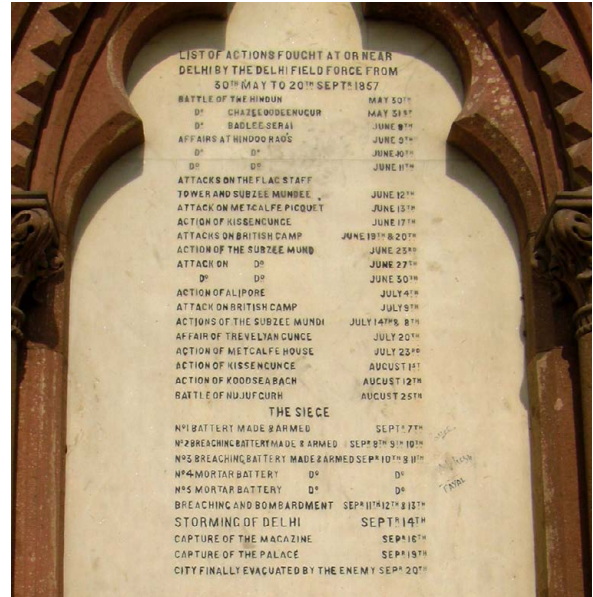 LIST OF ACTIONS FOUGHT AT OR NEAR
DELHI BY THE DELHI FIELD FORCE FROM
30TH MAY TO 20TH SEPTR 1857
BATTLE OF THE HINDUN MAY 30TH
Do GHAZEEOODEENUGUR MAY 31ST
Do BADLEE SERAI JUNE 8TH
AFFAIRS AT HINDOO RAO'S JUNE 9TH
Do Do JUNE 10TH
Do Do JUNE 11TH
ATTACKS ON THE FLAG STAFF
TOWER AND SUBZEE MUNDEE JUNE 12TH
ATTACK ON METCALFE PICQUET JUNE 13TH
ACTION OF KISSENGUNGE JUNE 17TH
ATTACKS ON BRITISH CAMP JUNE 19TH & 20TH
ACTION OF THE SUBZEE MUND JUNE 23RD
ATTACK ON Do JUNE 27TH
Do Do JUNE 30TH
ACTION OF ALIPORE JULY 4TH
ATTACK ON BRITISH CAMP JULY 9TH
ACTIONS OF THE SUBZEE MUNDI JULY 14TH & 8TH
AFFAIR OF TREVELYAN GUNGE JULY 20TH
ACTION OF METCALFE HOUSE JULY 23RD
ACTION OF KISSENGUNGE AUGUST 1ST
ACTION OF KOODSEABAGH AUGUST 12TH
BATTLE OF NUJUFGURH AUGUST 25TH
THE SIEGE
No 1 BATTERY MADE & ARMED SEPTR 7TH
No 2 BREACHING BATTERY MADE & ARMED SEPR 8TH 9TH 10TH
No 3 BREACHING BATTERY MADE & ARMED SEPR 10TH & 11TH
No 4 MORTAR BATTERY Do Do
No 5 MORTAR BATTERY Do Do
BREACHING AND BOMBARDMENT SEPR 11TH 12TH & 13TH
STORMING OF DELHI SEPTR 14TH
CAPTURE OF THE MAGAZINE SEPR 16TH
CAPTURE OF THE PALACE SEPR 19TH
CITY FINALLY EVACUATED BY THE ENEMY SEPR 20TH